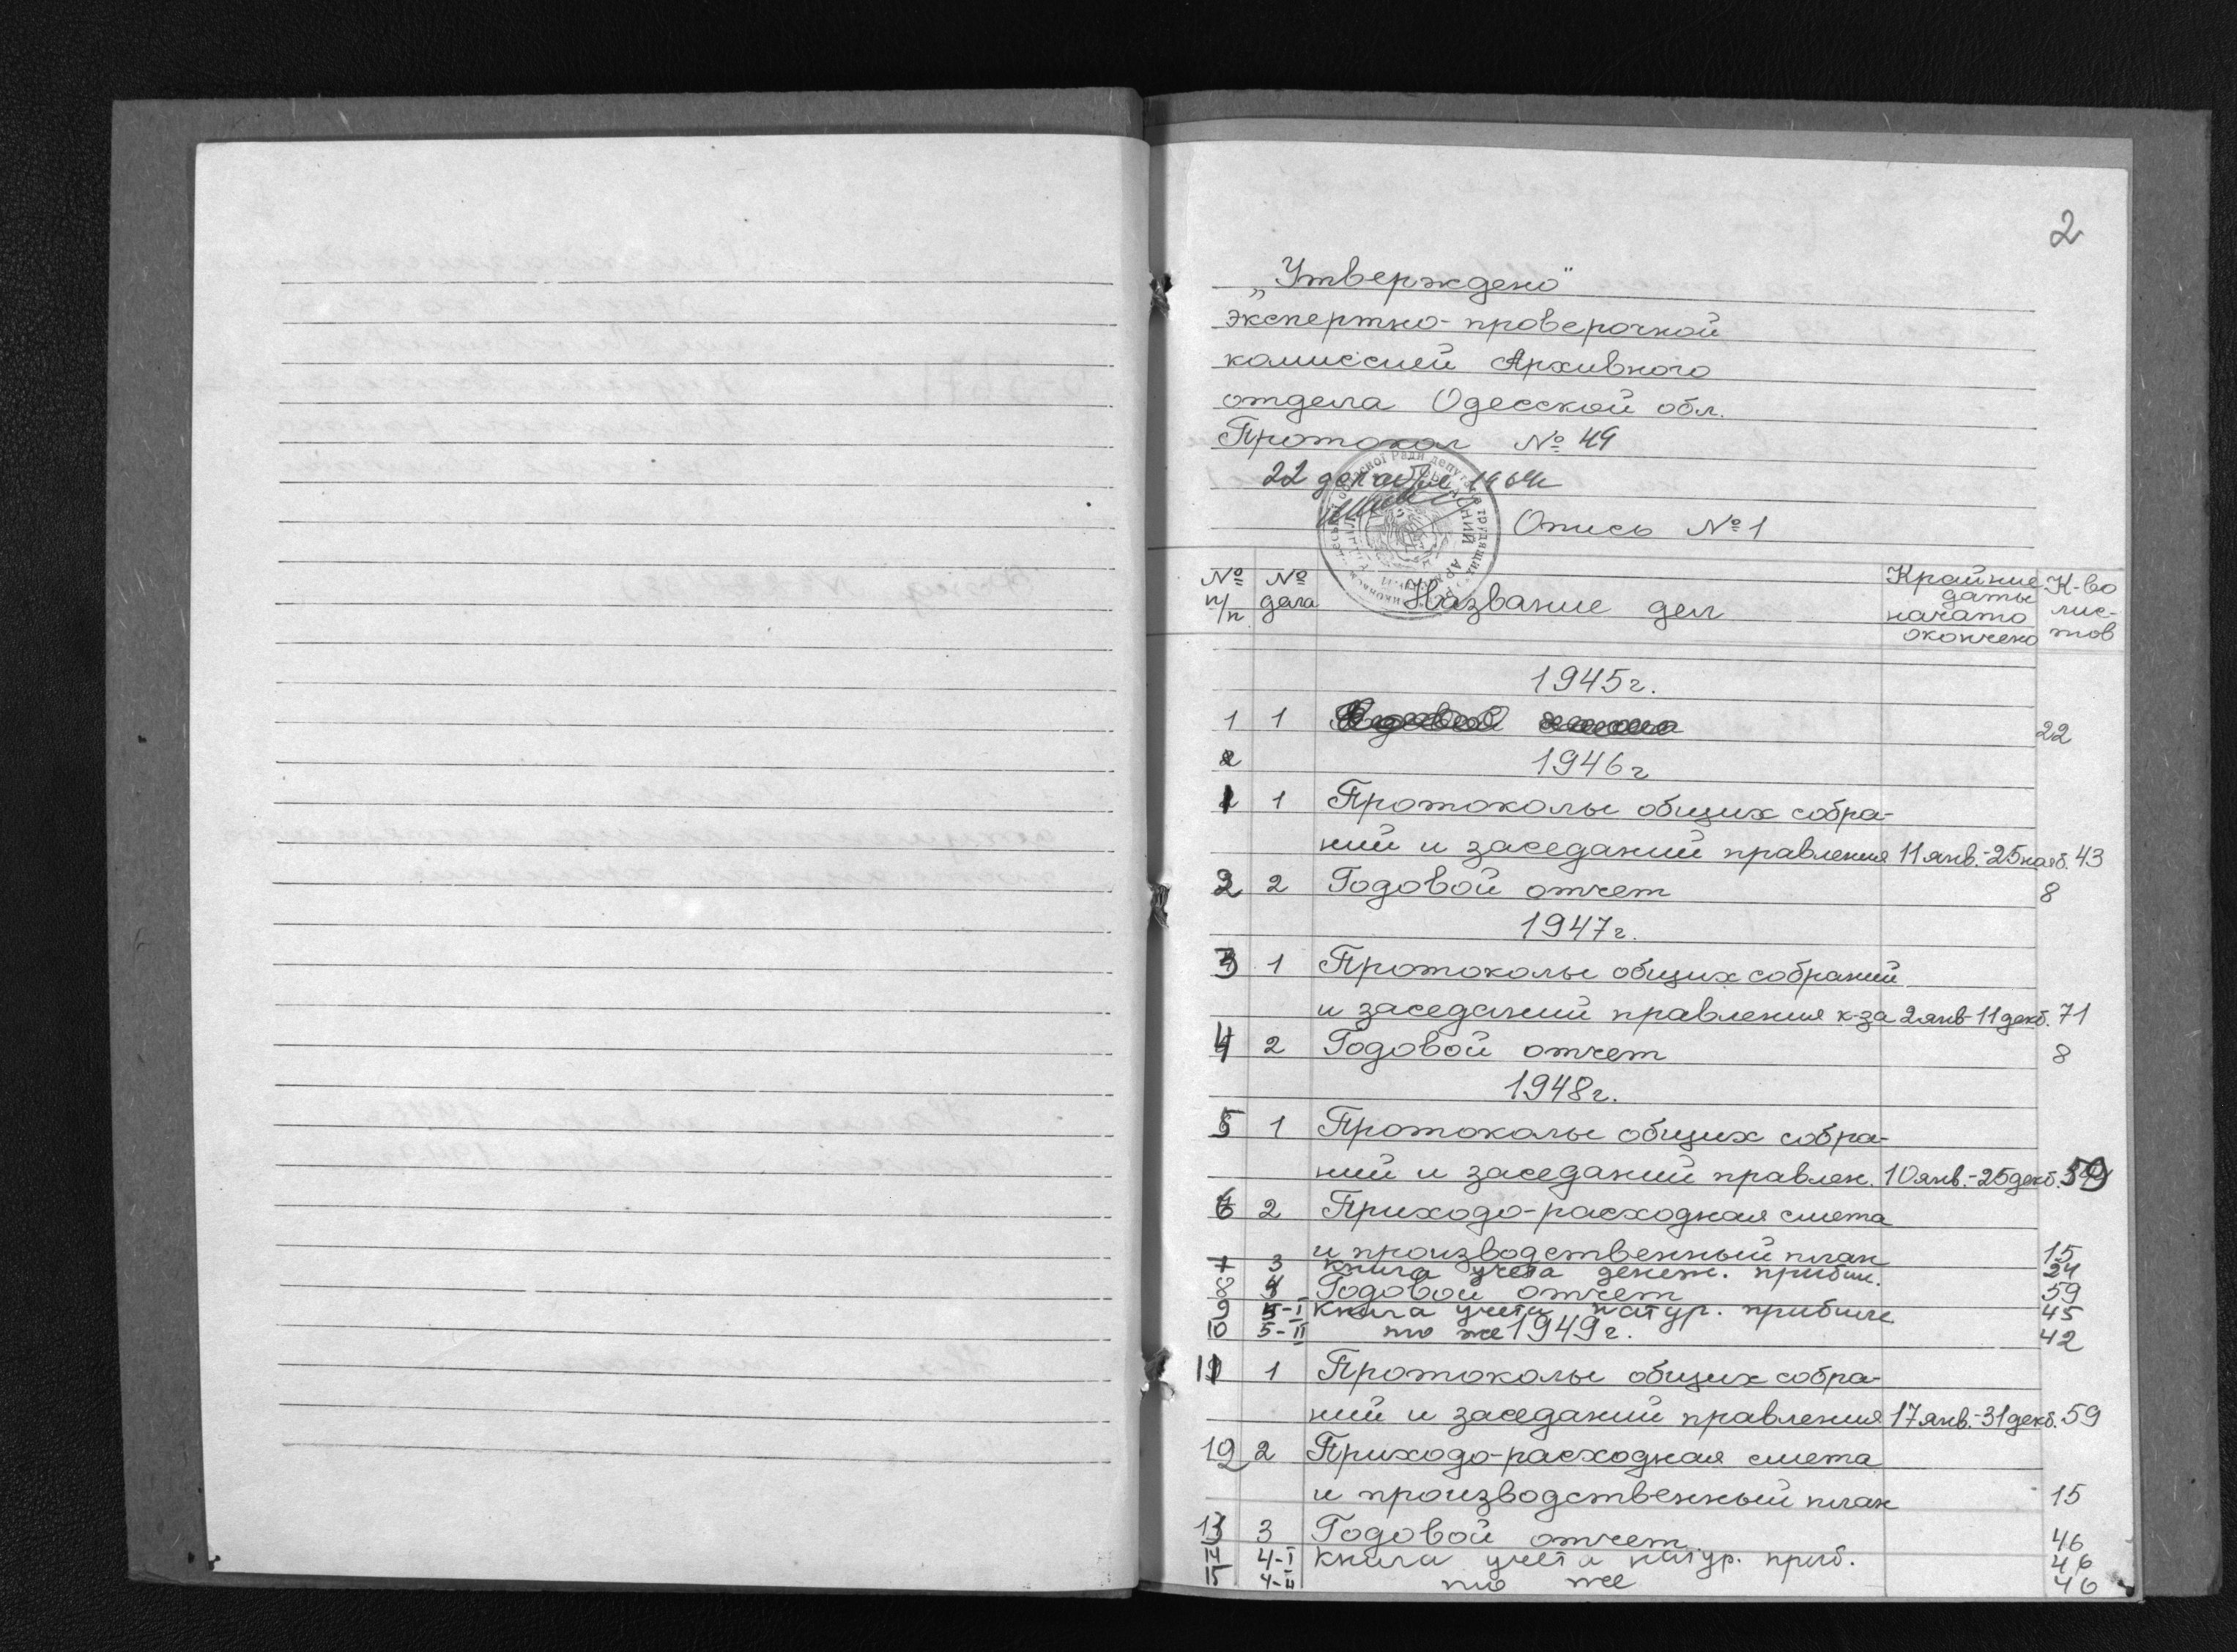 2
„Утверждено"
экспертно-проверочной
комиссией Архивного
отдела Одесской обл.
Протокол № 49
22 декабря 1964г
Опись № 1
№ п/п № дела Название дел Крайние даты начато окончено К-во лис-тов
1945г.
1 1 22
1946г
1 1 Протоколы общих собра-
ний и заседаний правления 11 янв.-25 нояб. 43
2 2 Годовой отчет 8
1947г.
3 1 Протоколы общих собраний
и заседаний правления к-за 2 янв-11 дек. 71
4 2 Годовой отчет 8
1948г.
5 1 Протоколы общих собра-
ний и заседаний правлен. 10 янв.-25 дек. 59
6 2 Приходо-расходная смета
и производственный план 15
7 3 Книга учета денеж. 24
8 4 Годовой отчет 59
9 5-I Книга учета натур. 45
10 5-II то же 42
1949г.
11 1 Протоколы общих собра-
ний и заседаний правления 17 янв.-31 дек. 59
12 2 Приходо-расходная смета
и производственный план 15
13 3 Годовой отчет 46
14 4-I Книга учета натур. 46
15 4-II то же 46